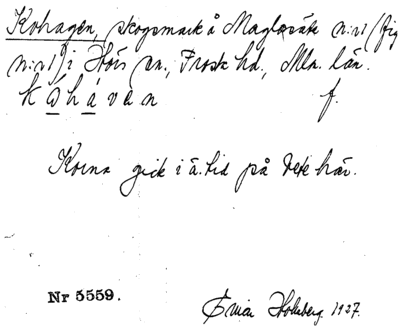 Kohagen, skogsmark å Maglasäte n:r1 (fig
n:r1) i Höörs sn., Frosta hd., Mlm. län.
kóháven f.
Korna gick i ä. tid på bete här.
Nr 5559. Ossian Holmberg 1937.